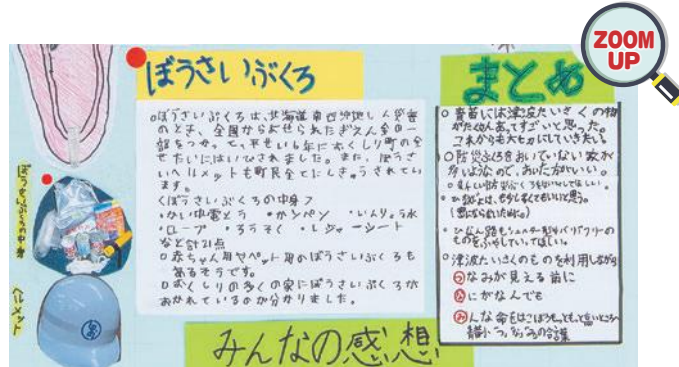 ZOOM
UP
ぼうさいぶくろ
○ぼうさいぶくろは、北海道南西沖地しん災害
のとき、全国からよせられたぎえん金の一
部をつかって、平せい
年におくしり町の全
せたいにはいひされました。また、ぼうさ
いヘルメットも町民全てにしきゅうされてい
ます。
くぼうさいぶくろの中身フ
・かい中電とう ・カンパン ・いんりょう水
・ロープ ・ろうそく ・レジャーシート
など計21点
○赤ちゃん用やペット用のぼうさいぶくろも
あるそうです。
○おくしりの多くの家にぼうさいぶくろが
おかれているのが分かりました。
ぼうさいぶくろの中身
ヘルメット
まとめ
○青苗には津波たいさくの物
がたくさんあってすごいと思った。
これからも大せつにしていきたい。
○防災ぶくろをおいていない家が
多いようなので、おいた方がいい。
・ひなん路もシェルター型やバリアフリーの
ものをふやしていってほしい。
○津波たいさくのものを利用しながら
つなみが見える前に
なにがなんでも
みんな命をはこぼうもっともっと高いところへ
みんなの感想